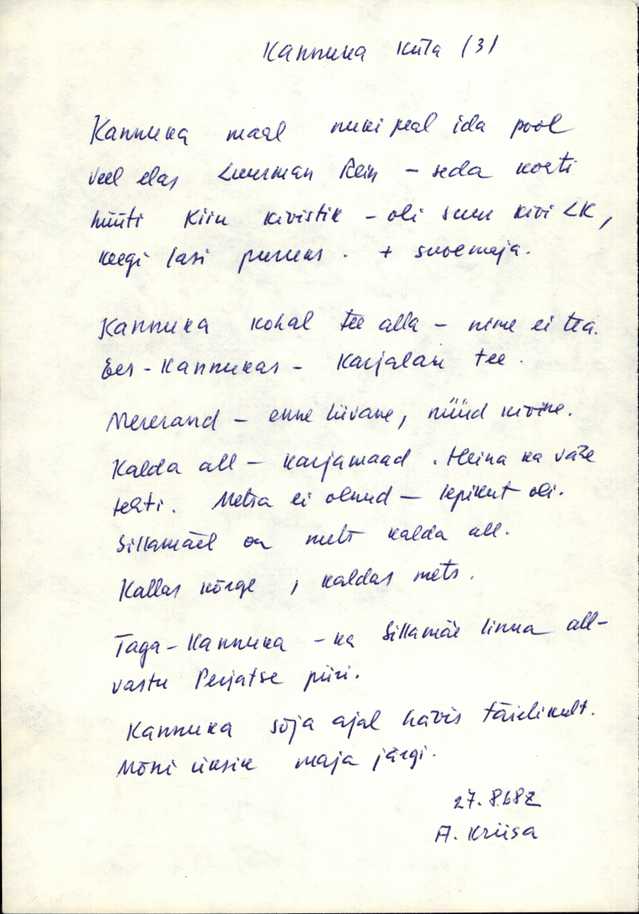 Kannuka küla (3)
Kannuka maal nuki peal ida pool
veel elas Luurman Rein – seda kohti
hüüti Kiiu kivistik – oli suur kivi LK,
keegi lasi puruks. + suvemaja.
Kannuka kohal tee alla – nime ei tea.
Ees-Kannukas – Karjalan tee.
Mererand – enne liivane, nüüd kivine.
Kalda all – karjamaad. Heina ka vähe
tehti. Metsa ei olnud – lepikut oli.
Sillamäel on mets kalda all.
Kallas kõrge, kaldas mets.
Taga-Kannuka – ka Sillamäe linna all-
vastu Perjatse piiri.
Kannuka sõja ajal hävis täielikult.
Mõni üksik maja järgi.
A. Kriisa